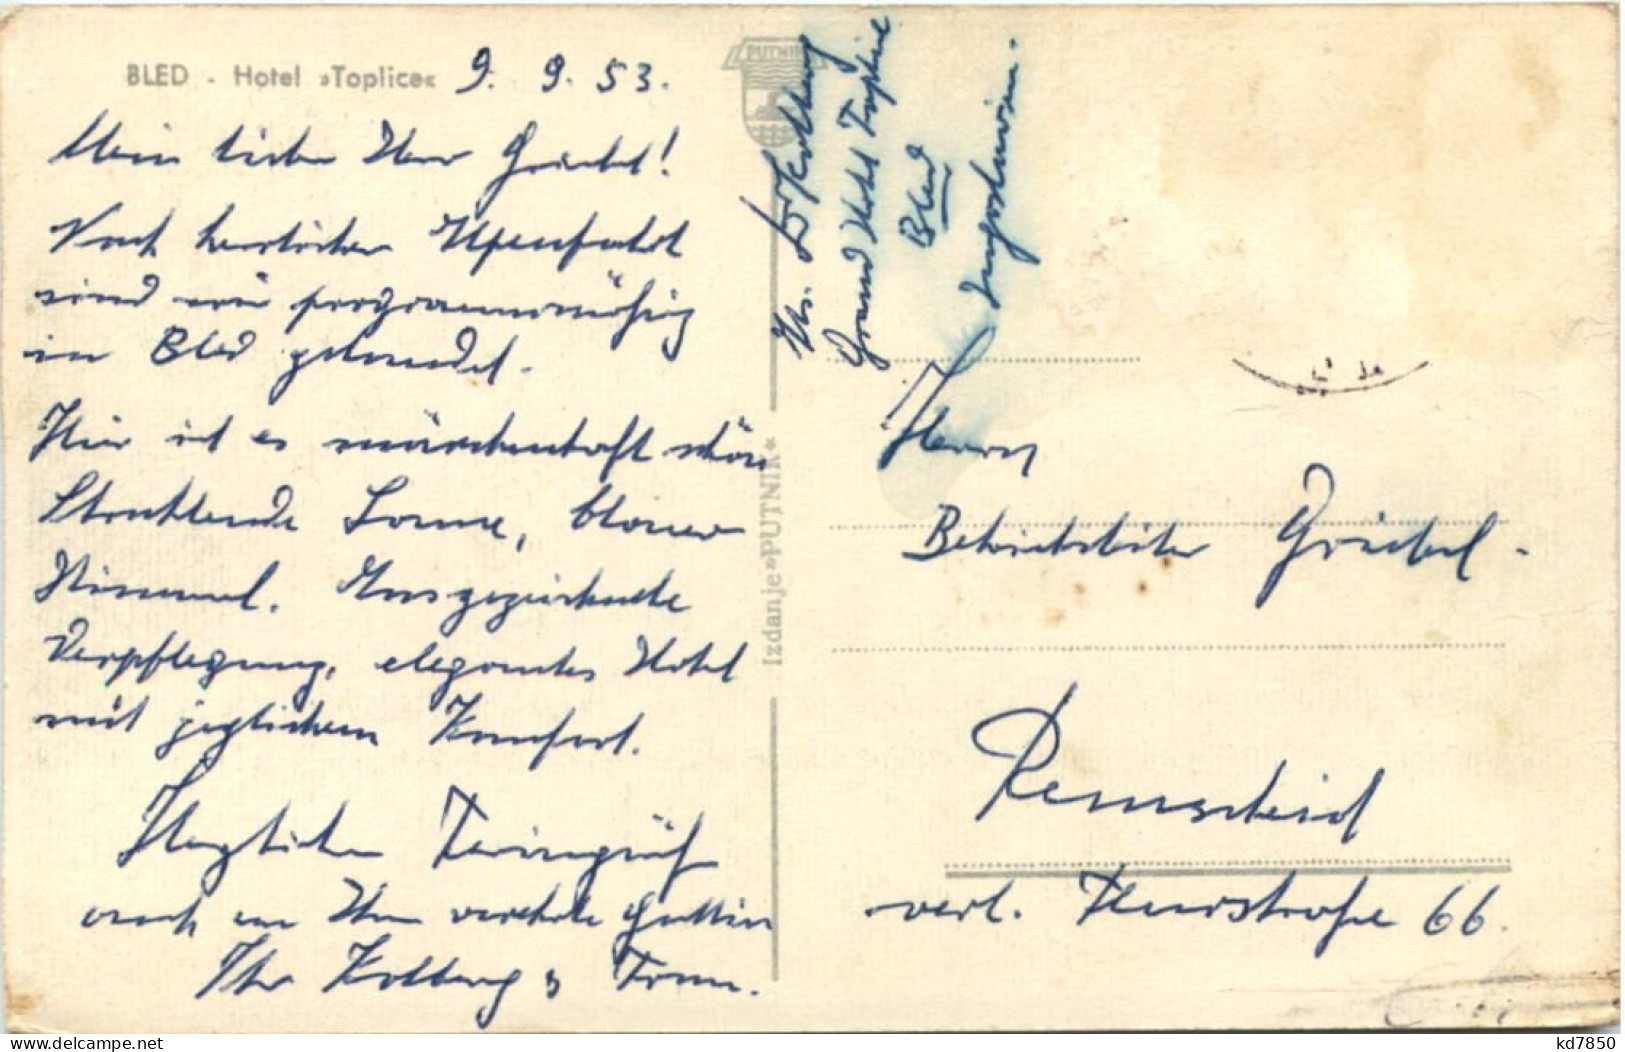 BLED - Hotel »Toplice« 9. 9. 53.
Mein lieber Herr Griebel!
Nach herrlicher Alpenfahrt
sind wir programmmäßig
in Bled gelandet.
Hier ist es märchenhaft schön
Strahlende Sonne, blauer
Himmel. Ausgezeichnete
Verpflegung, elegantes Hotel
mit jeglichem Komfort.
Herzlichen Feriengruß
auch an Ihre verehrte Gattin
Ihr Kollberg & Frau.
PUTNIK
Izdanje »PUTNIK«
Kollberg
Grand Hotel Toplice
Bled
Jugoslawien.
Herrn
Betriebsleiter Griebel.
Remscheid
verl. Neustraße 66.
kd7850